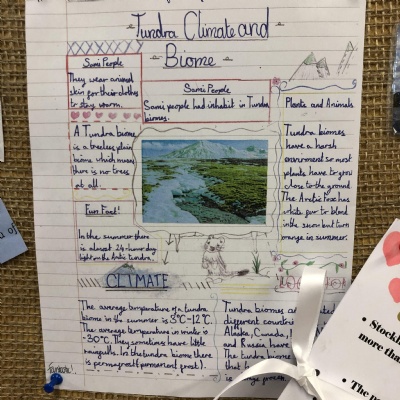 Tundra Climate and
Biome
Sami People
They wear animal
skin for their clothes
to stay warm.
Sami People
Sami people had inhabit in Tundra
biomes.
Plants and Animals
A Tundra biome
is a treeless plain
biome which means
there is no trees
at all.
Tundra biomes
have a harsh
enviroment so most
plants have to grow
close to the ground.
The Arctic Fox has
white fur to blend
in the snow but turn
orange in summer.
Fun Fact!
In the summer there
is almost 24-hour day
light on the Arctic tundra.
CLIMATE
The average temperature of a tundra
biome in the summer is 3°C-12°C.
The average temperature in winter is
-30°C. They sometimes have little
rainfalls. In the tundra biome there
is permafrost (permanent frost).
Tundra biomes
different countri
Alaska, Canada,
and Russia have
The tundra biome
that
is
Fantastic!
Stockb
more than
The m